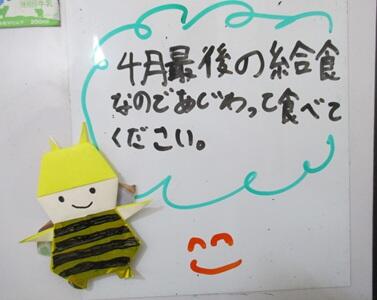 4月最後の給食
なのであじわって食べて
ください。